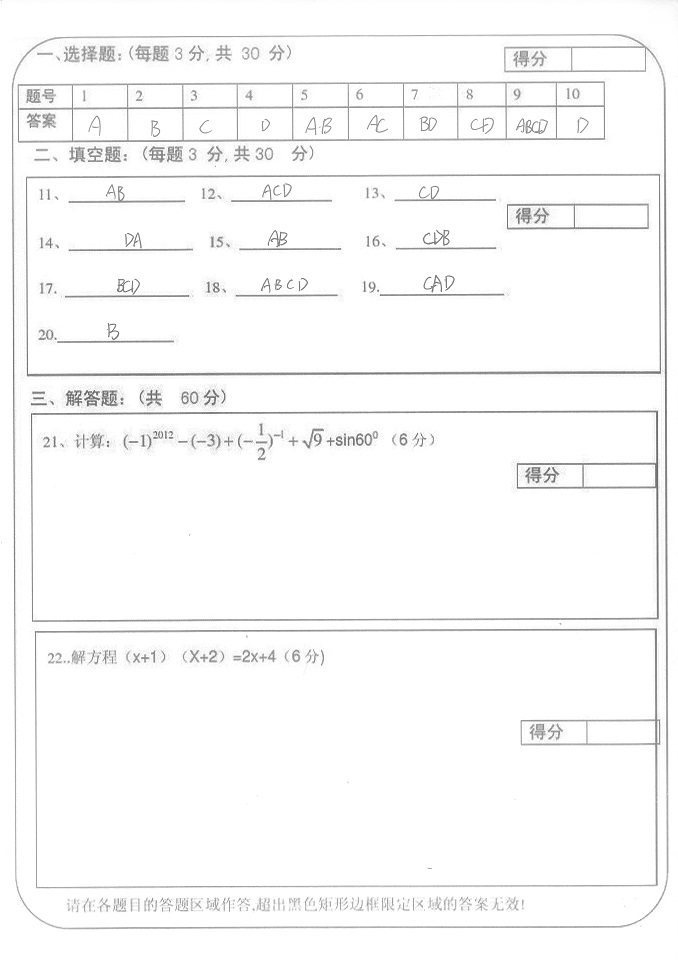 一、选择题:(每题 3 分, 共 30 分)
得分
题号 1 2 3 4 5 6 7 8 9 10
答案 A B C D A·B AC BD CD ABCD D
二、填空题:(每题 3 分, 共 30 分)
11、 AB 12、 ACD 13、 CD
得分
14、 DA 15、 AB 16、 CDB
17. BCD 18、 ABCD 19. CAD
20. B
三、解答题:(共 60 分)
21、计算: (-1)²⁰¹²-(-3)+(-1/2)⁻¹+√9+sin60⁰ (6 分)
得分
22..解方程(x+1)(X+2)=2x+4(6 分)
得分
请在各题目的答题区域作答,超出黑色矩形边框限定区域的答案无效!